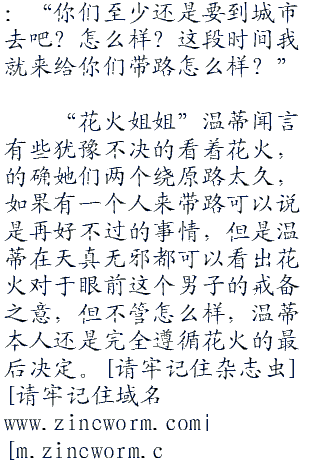 ：“你们至少还是要到城市
去吧？怎么样？这段时间我
就来给你们带路怎么样？”
“花火姐姐”温蒂闻言
有些犹豫不决的看着花火，
的确她们两个绕原路太久，
如果有一个人来带路可以说
是再好不过的事情，但是温
蒂在天真无邪都可以看出花
火对于眼前这个男子的戒备
之意，但不管怎么样，温蒂
本人还是完全遵循花火的最
后决定。[请牢记住杂志虫]
[请牢记住域名
www.zincworm.com|
[m.zincworm.c